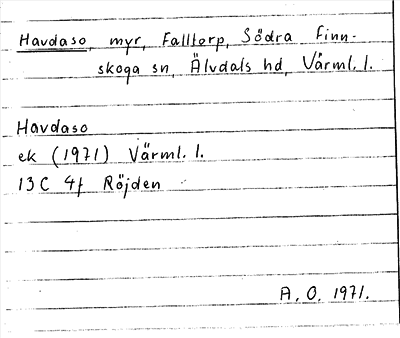 Havdaso, myr, Falltorp, Södra Finn-
skoga sn, Älvdals hd, Värml. l.
Havdaso
ek (1971) Värml. l.
13C 4f Röjden
A. O. 1971.